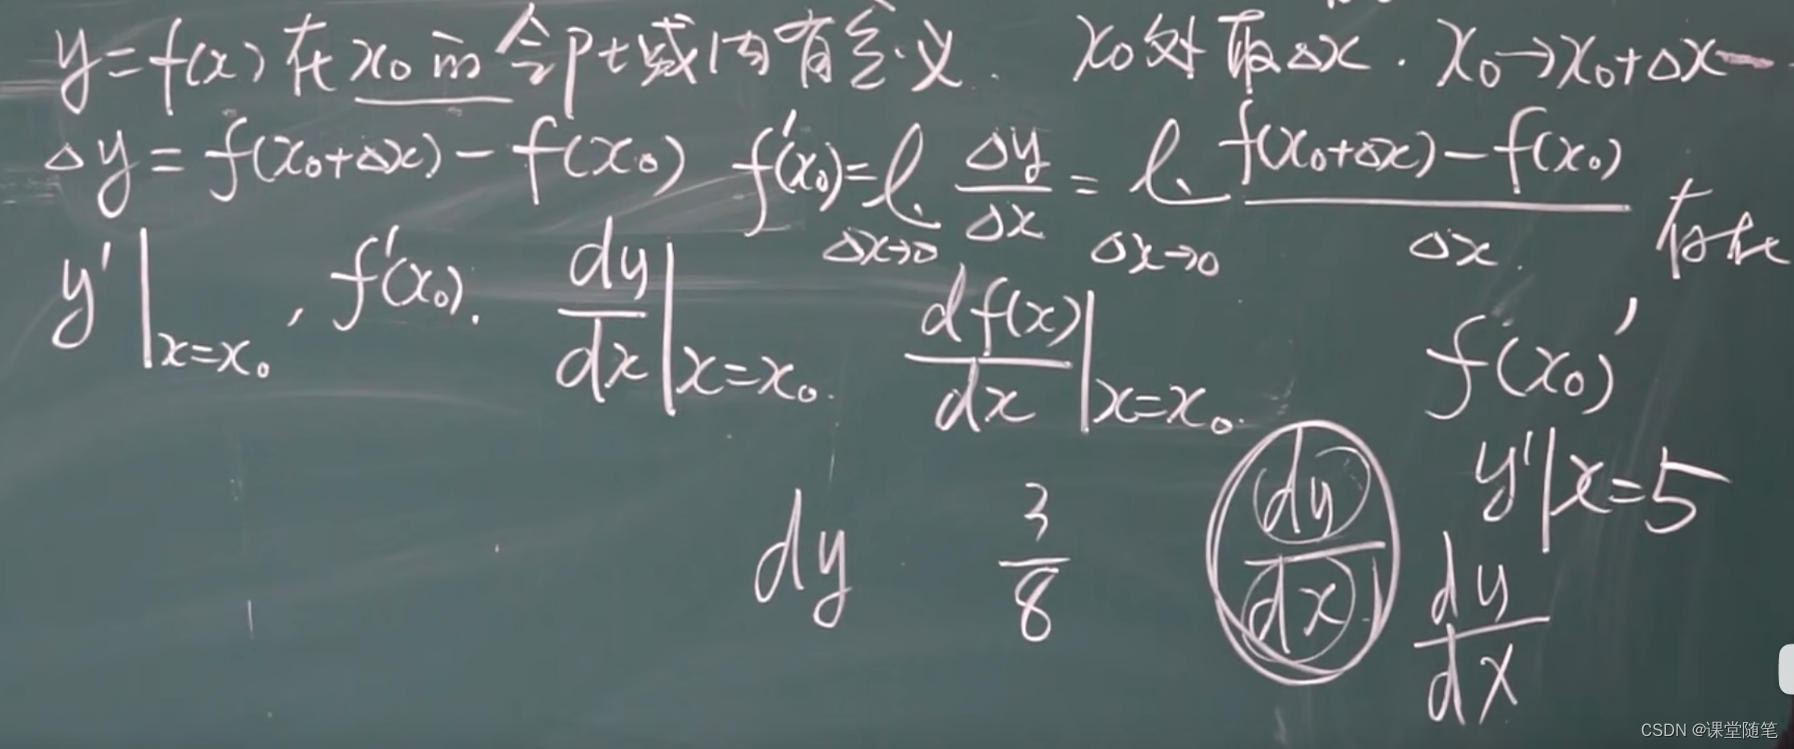 y=f(x)在x₀的邻域内有定义. x₀处取Δx. x₀→x₀+Δx
Δy=f(x₀+Δx)-f(x₀) f'(x₀)=l. Δx→0 Δy/Δx = l. Δx→0 (f(x₀+Δx)-f(x₀))/Δx. 存在
y'|x=x₀, f'(x₀). dy/dx|x=x₀. df(x)/dx|x=x₀. f(x₀)'
y'|x=5
dy 3/8 dy/dx dy/dx
CSDN @课堂随笔